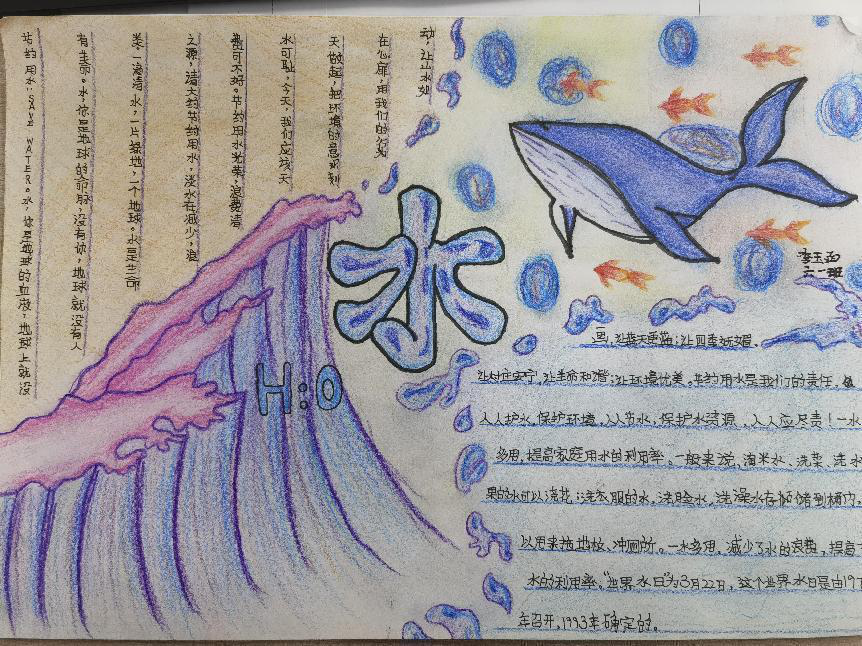 节约用水"SAVE WATER。水,你是地球的血液,地球上就没
有生命。水,你是地球的命脉,没有你,地球就没有人
类。一滴清水,一片绿地,一个地球。水是生命
之源,请大家节约用水,淡水在减少,浪
费可不好。节约用水光荣,浪费清
水可耻,今天,我们应该天
天做起,把环境的意识刻
在心扉,用我们的行为
动,让山水如
水
H:O
李玉
六一班
画,让蓝天更蓝;让四季妩媚。
让村庄安宁,让生命和谐;让环境优美。节约用水是我们的责任,
人人护水,保护环境,人人节水,保护水资源,人人应尽责!一水
多用,提高家庭用水的利用率。一般来说,淘米水、洗菜、洗水
果的水可以浇花;洗衣服的水,洗脸水,洗澡水存储到桶内,
以用来拖地板、冲厕所。一水多用,减少了水的浪费,提高了
水的利用率。"世界水日"为3月22日,这个世界水日是由197
年召开,1993年确定的。